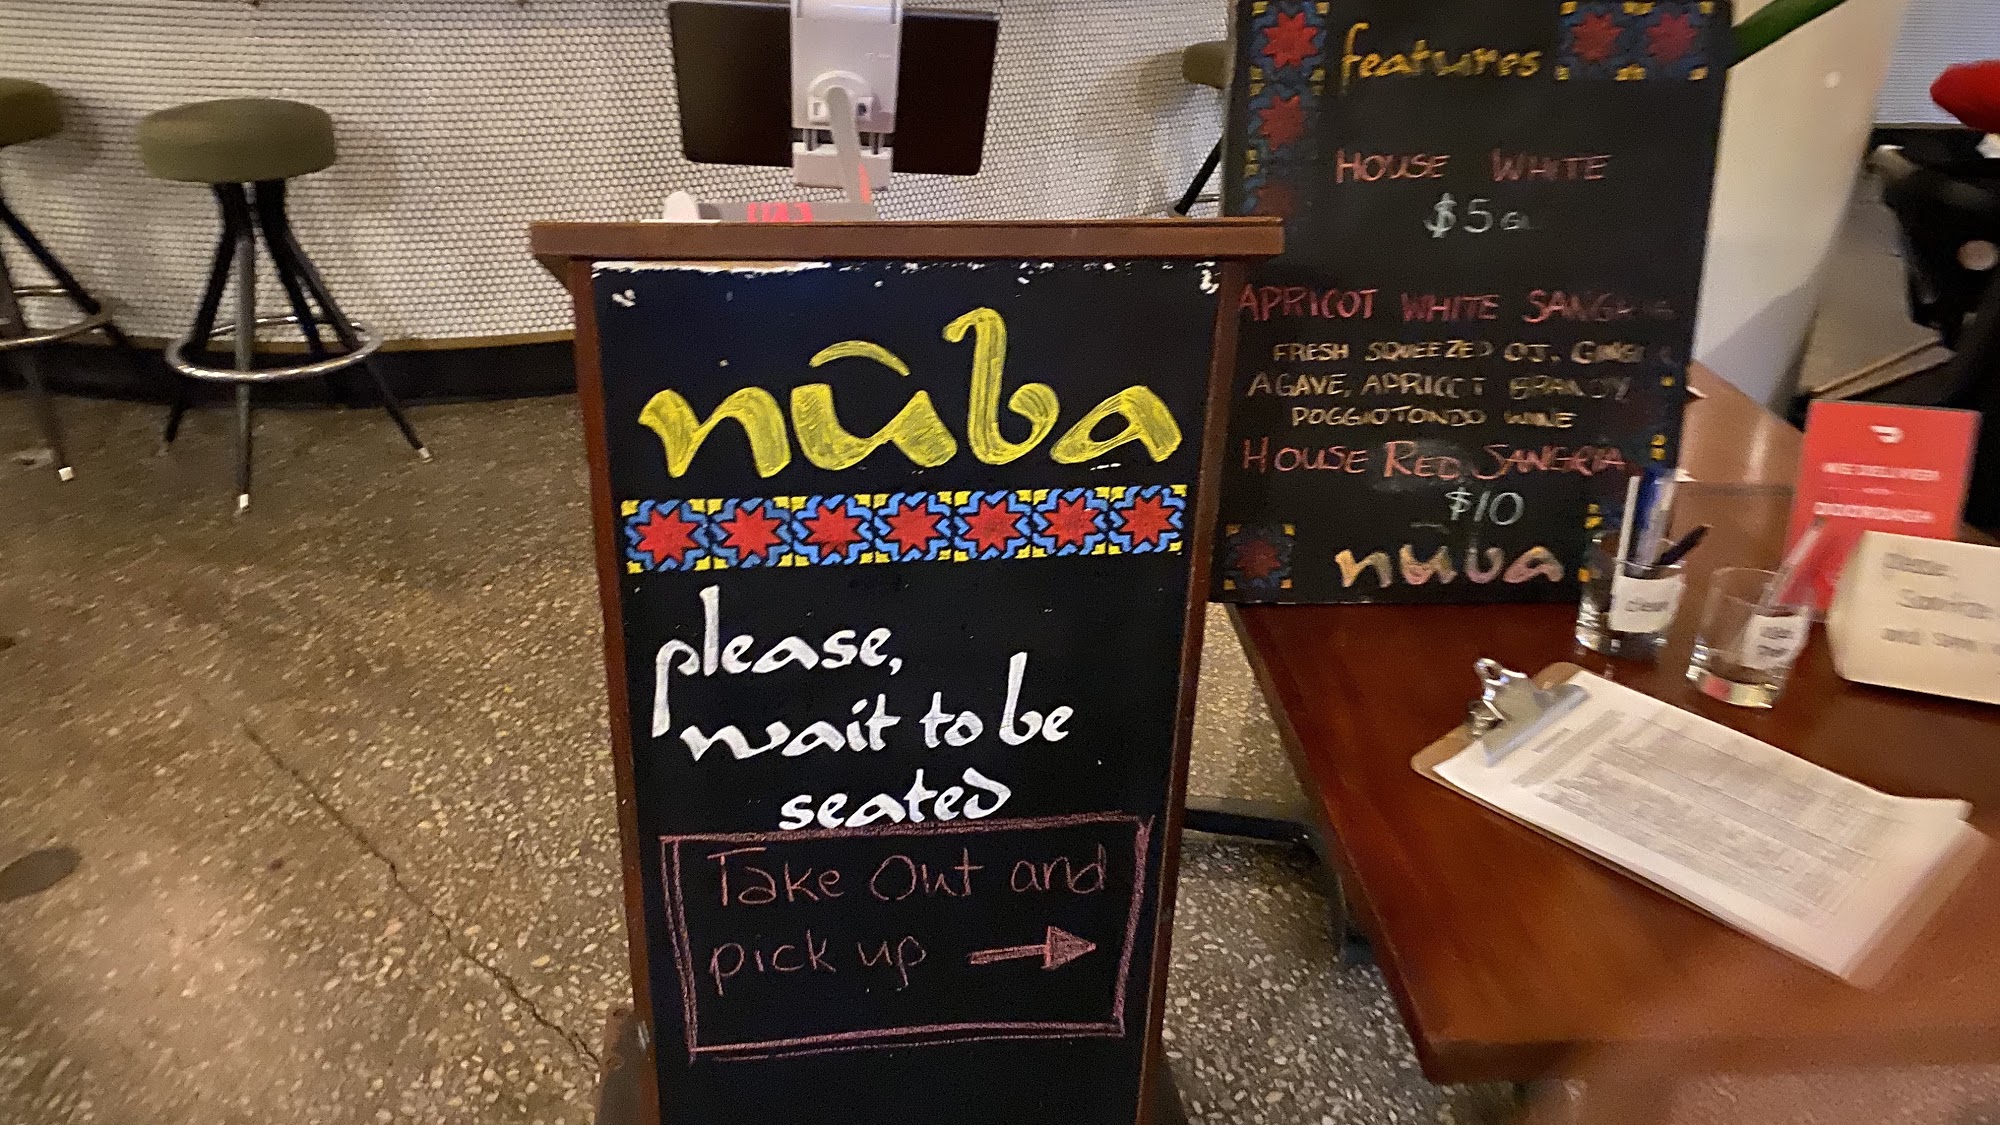 nūba
please,
wait to be
seated
Take Out and
pick up
features
HOUSE WHITE
$5 GL
APRICOT WHITE SANGRIA
FRESH SQUEEZED OJ, GINGER
AGAVE, APRICOT BRANDY
POGGIOTONDO WINE
HOUSE RED SANGRIA
$10
nuba
WE DELIVER
DOORDASH
clean
Please,
Sanitize
and